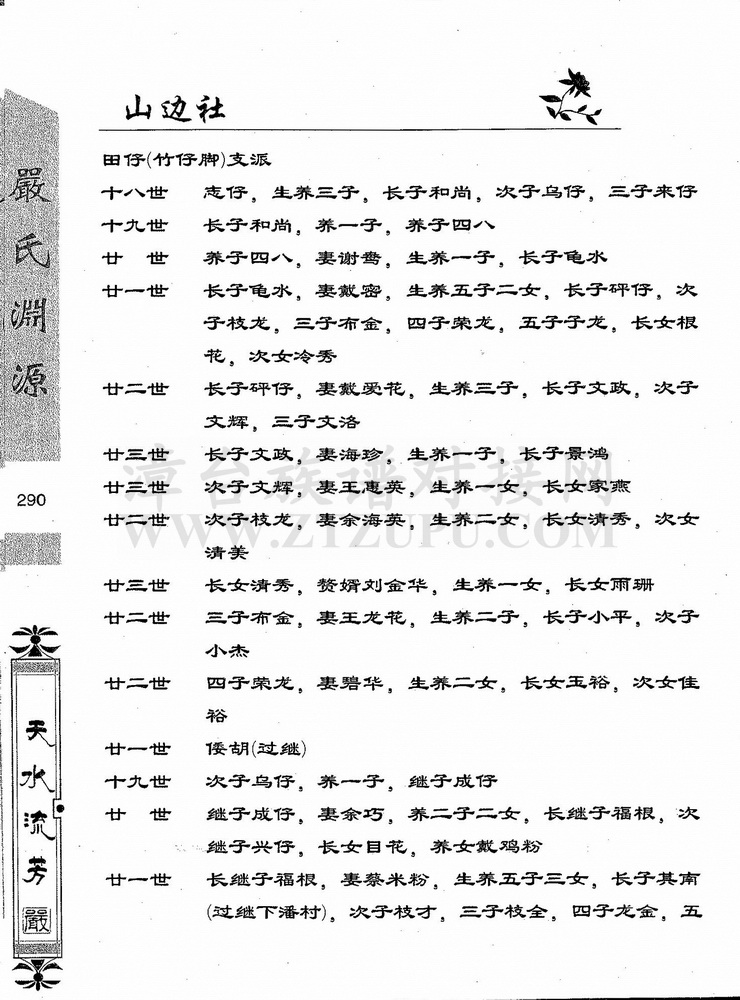 山边社
田仔(竹仔脚)支派
十八世 志仔，生养三子，长子和尚，次子乌仔，三子来仔
十九世 长子和尚，养一子，养子四八
廿 世 养子四八，妻谢鸯，生养一子，长子龟水
廿一世 长子龟水，妻戴密，生养五子二女，长子砰仔，次
子枝龙，三子布金，四子荣龙，五子子龙，长女根
花，次女冷秀
廿二世 长子砰仔，妻戴爱花，生养三子，长子文政，次子
文辉，三子文洛
廿三世 长子文政，妻海珍，生养一子，长子景鸿
廿三世 次子文辉，妻王惠英，生养一女，长女家燕
廿二世 次子枝龙，妻余海英，生养二女，长女清秀，次女
清美
廿三世 长女清秀，赘婿刘金华，生养一女，长女雨珊
廿二世 三子布金，妻王龙花，生养二子，长子小平，次子
小杰
廿二世 四子荣龙，妻碧华，生养二女，长女玉裕，次女佳
裕
廿一世 倭胡(过继)
十九世 次子乌仔，养一子，继子成仔
廿 世 继子成仔，妻余巧，养二子二女，长继子福根，次
继子兴仔，长女目花，养女戴鸡粉
廿一世 长继子福根，妻蔡米粉，生养五子三女，长子其南
(过继下潘村)，次子枝才，三子枝全，四子龙金，五
嚴氏淵源
290
天水流芳
嚴
漳台族谱对接网
WWW.ZTZUPU.COM